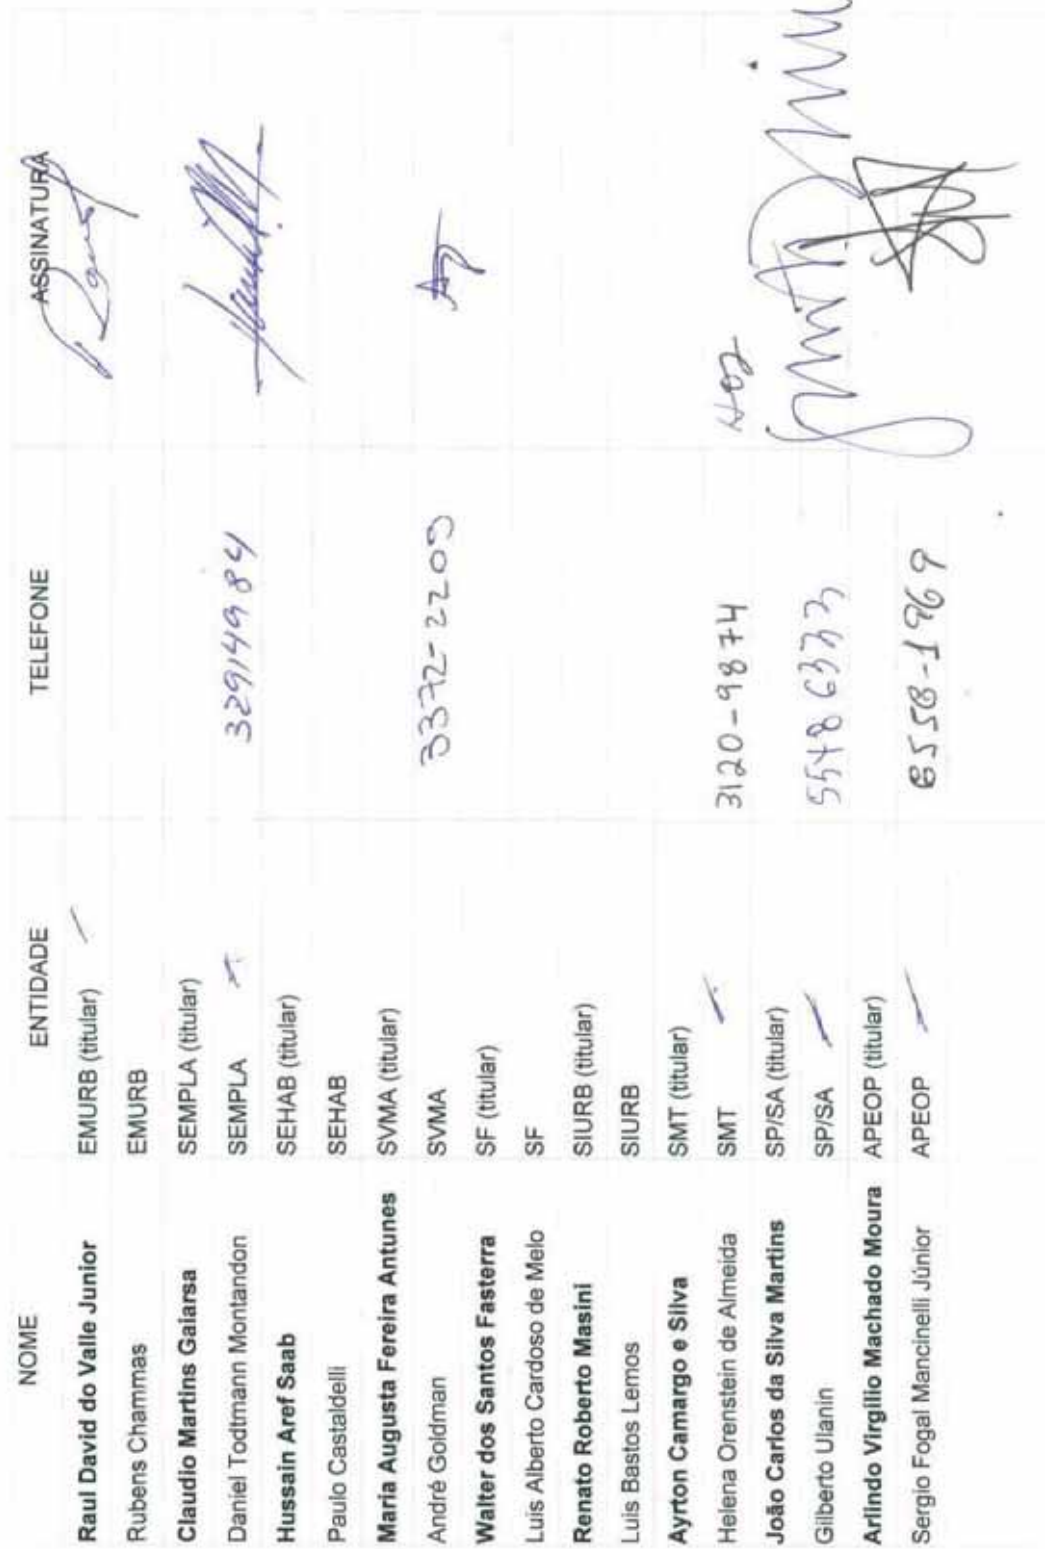 NOME ENTIDADE TELEFONE ASSINATURA
Raul David do Valle Junior EMURB (titular)
Rubens Chammas EMURB
Claudio Martins Gaiarsa SEMPLA (titular)
Daniel Todtmann Montandon SEMPLA 32914984
Hussain Aref Saab SEHAB (titular)
Paulo Castaldelli SEHAB
Maria Augusta Fereira Antunes SVMA (titular)
André Goldman SVMA 3372-2209
Walter dos Santos Fasterra SF (titular)
Luis Alberto Cardoso de Melo SF
Renato Roberto Masini SIURB (titular)
Luis Bastos Lemos SIURB
Ayrton Camargo e Silva SMT (titular)
Helena Orenstein de Almeida SMT 3120-9874
João Carlos da Silva Martins SP/SA (titular)
Gilberto Ulanin SP/SA 5548 6333
Arlindo Virgílio Machado Moura APEOP (titular)
Sergio Fogal Mancinelli Júnior APEOP